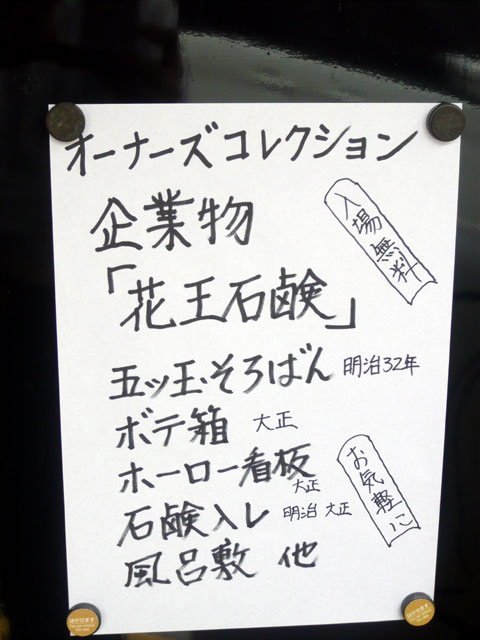 オーナーズコレクション
企業物
「花王石鹸」
入場無料
五ッ玉・そろばん 明治32年
ボテ箱 大正
ホーロー看板 大正
石鹸入レ 明治 大正
風呂敷 他
お気軽に